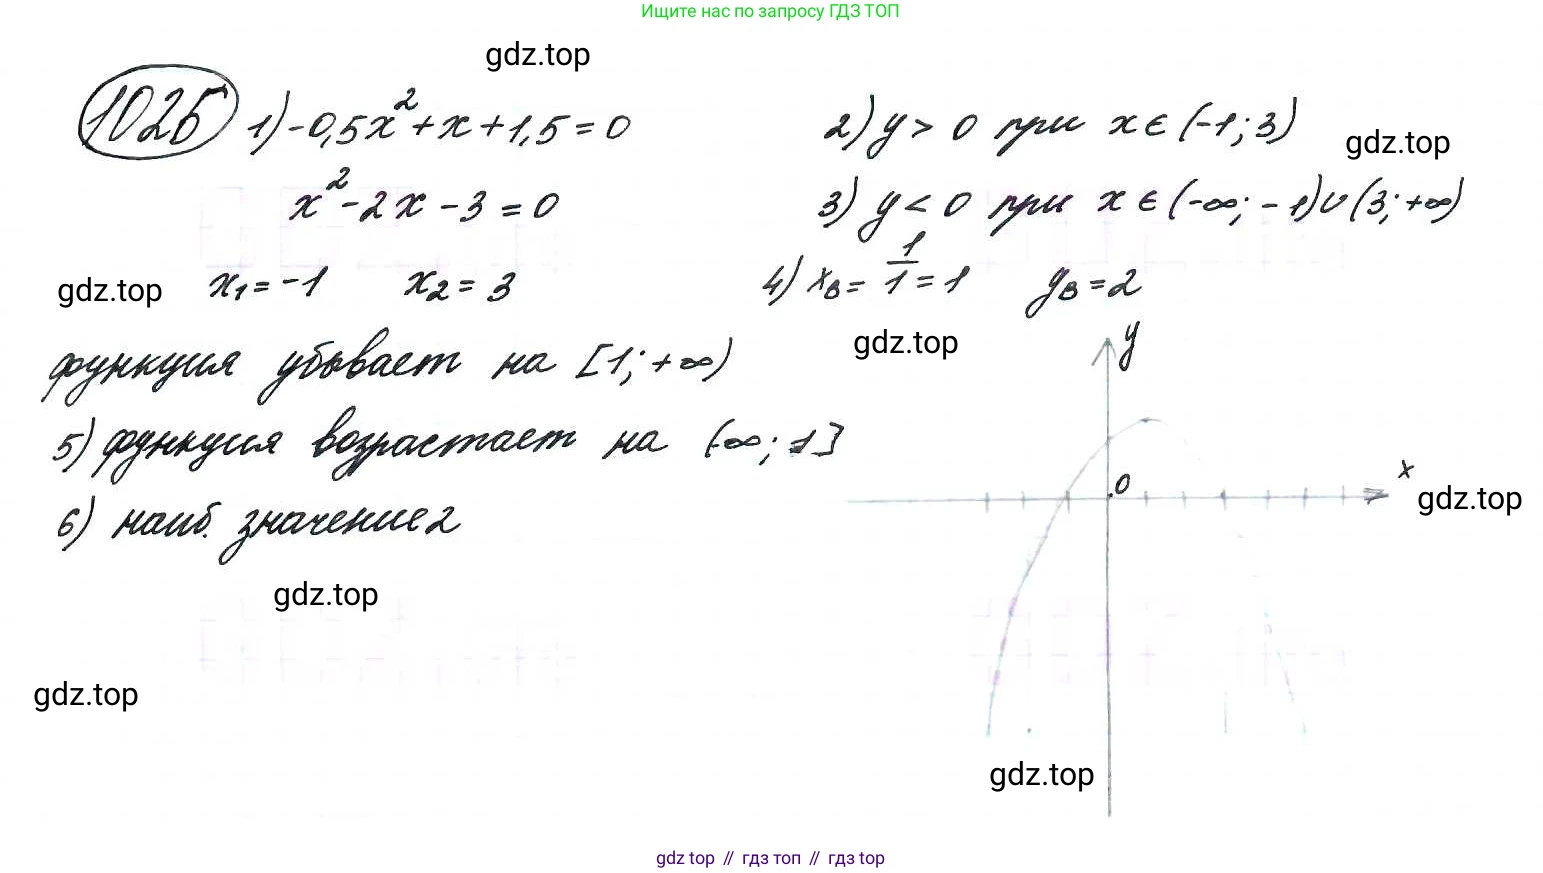 Ищите нас по запросу ГДЗ ТОП
gdz.top
1025 1) -0,5x² + x + 1,5 = 0
x² - 2x - 3 = 0
gdz.top x₁ = -1 x₂ = 3
функция убывает на [1; +∞)
5) функция возрастает на (-∞; 1]
6) наиб. значение 2
gdz.top
gdz.top
2) y > 0 при x ∈ (-1; 3)
gdz.top
3) y < 0 при x ∈ (-∞; -1) ∪ (3; +∞)
4) xв = 1/1 = 1 yв = 2
gdz.top
y
x
0
gdz.top
gdz.top
gdz top // гдз топ // гдз top